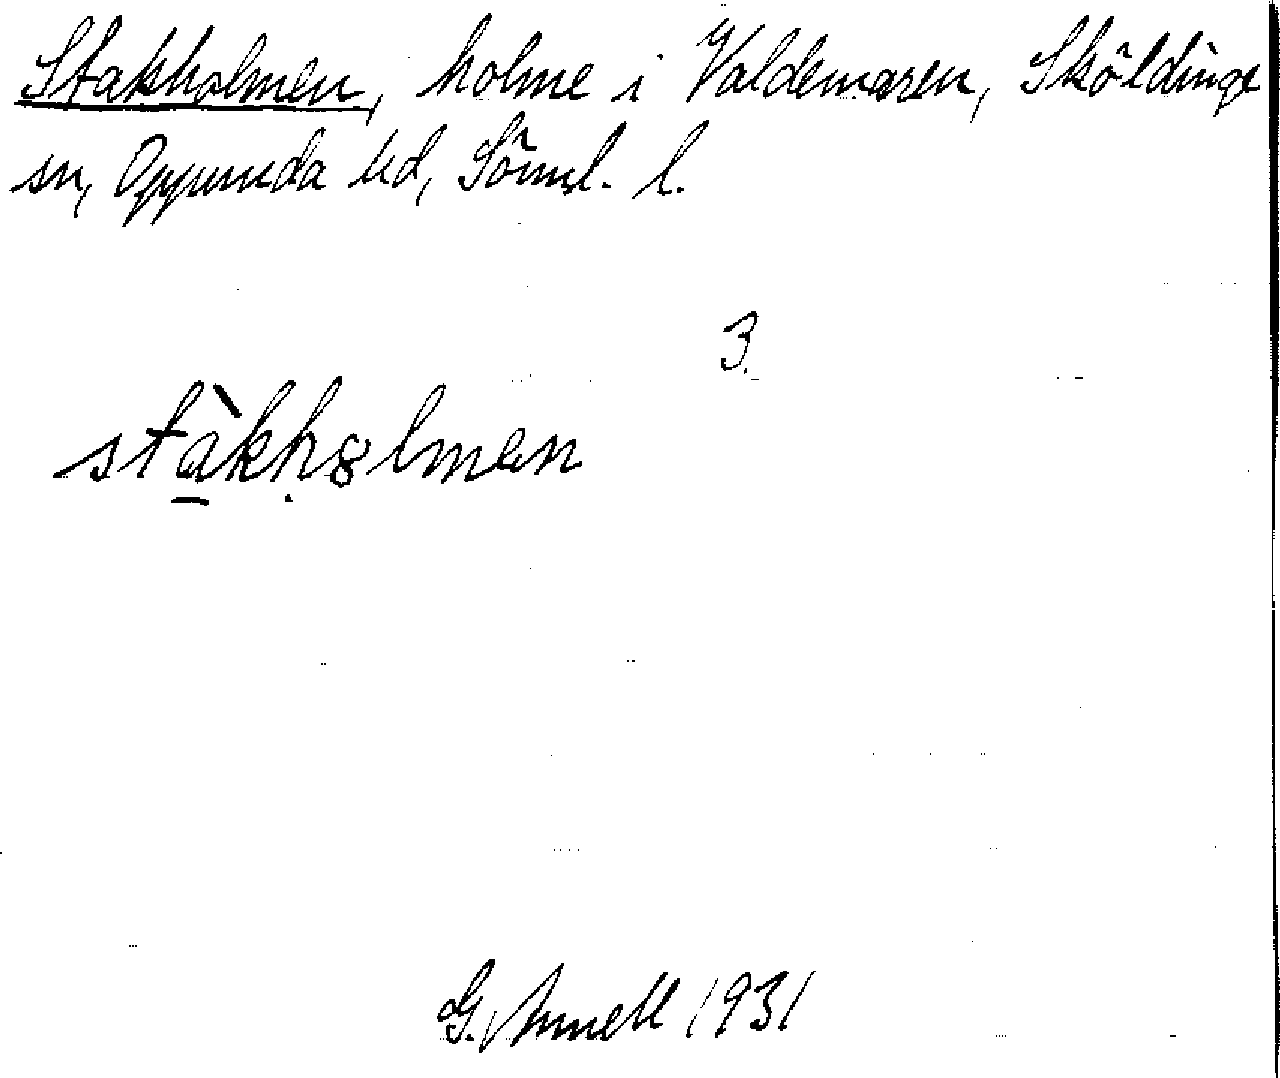 Stakholmen, holme i Valdemaren, Sköldinge
sn, Oppunda hd, Söml. l.
3.
stàkhȯlmen
G. Annell 1931